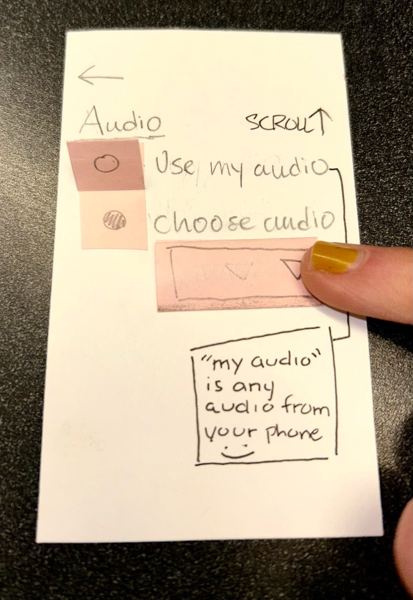 Audio
SCROLL
Use my audio
choose audio
"my audio"
is any
audio from
your phone